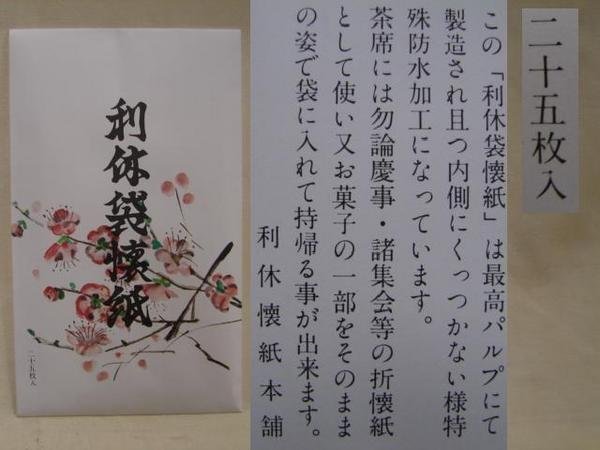 利休袋懐紙
二十五枚入
この「利休袋懐紙」は最高パルプにて
製造され且つ内側にくっつかない様特
殊防水加工になっています。
茶席には勿論慶事・諸集会等の折懐紙
として使い又お菓子の一部をそのまま
の姿で袋に入れて持帰る事が出来ます。
利休懐紙本舗
二十五枚入